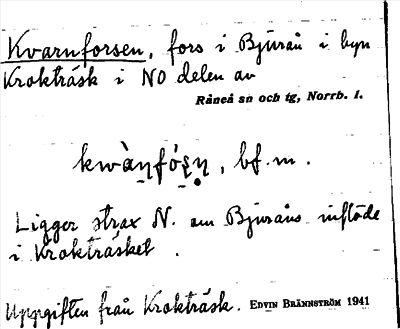 Kvarnforsen, fors i Bjurån i byn
Krokträsk i NO delen av
Råneå sn och tg, Norrb. l.
kwàṇfó́ṣṇ̥, bf. m.
Ligger strax N. om Bjuråns inflöde
i Krokträsket.
Uppgiften från Krokträsk. EDVIN BRÄNNSTRÖM 1941